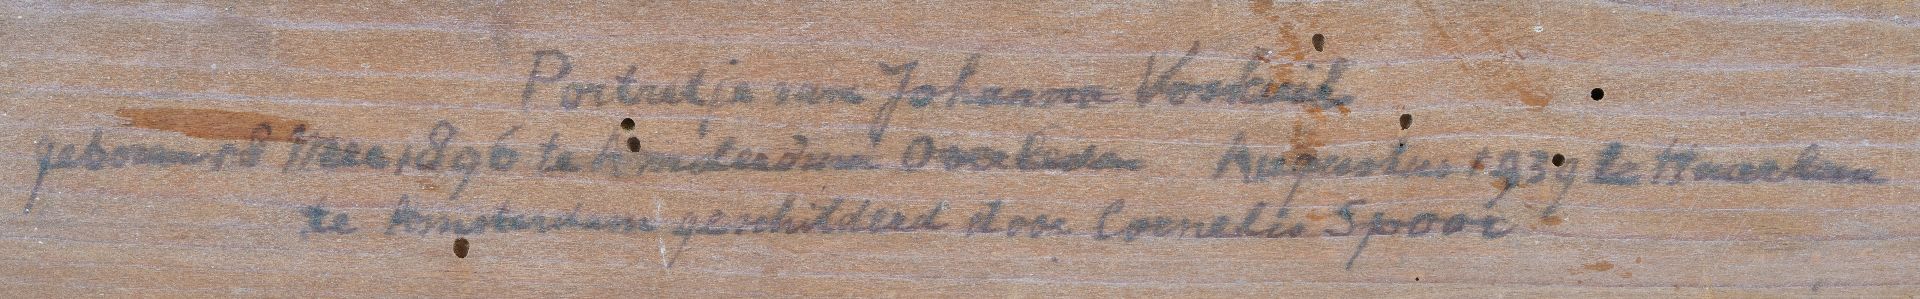 Portretje van Johanna Voskuil
geboren 18 Mei 1896 te Amsterdam Overleden Augustus 1939 te Haarlem
te Amsterdam geschilderd door Cornelis Spoor